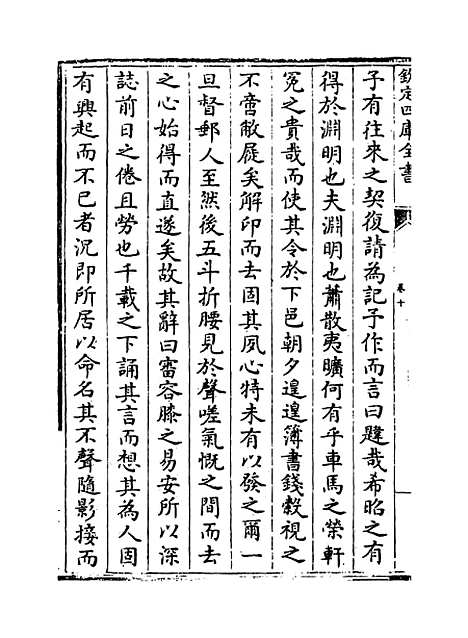 欽定四庫全書
卷十
子有往來之契復請為記予作而言曰韙哉希昭之有
得於淵明也夫淵明也蕭散夷曠何有乎車馬之榮軒
冕之貴哉而使其令於下邑朝夕遑遑簿書錢穀視之
不啻敝屣矣解印而去固其夙心特未有以發之爾一
旦督郵人至然後五斗折腰見於聲嗟氣慨之間而去
之心始得而直遂矣故其辭曰審容膝之易安所以深
誌前日之倦且勞也千載之下誦其言而想其為人固
有興起而不已者況即所居以命名其不聲隨影接而